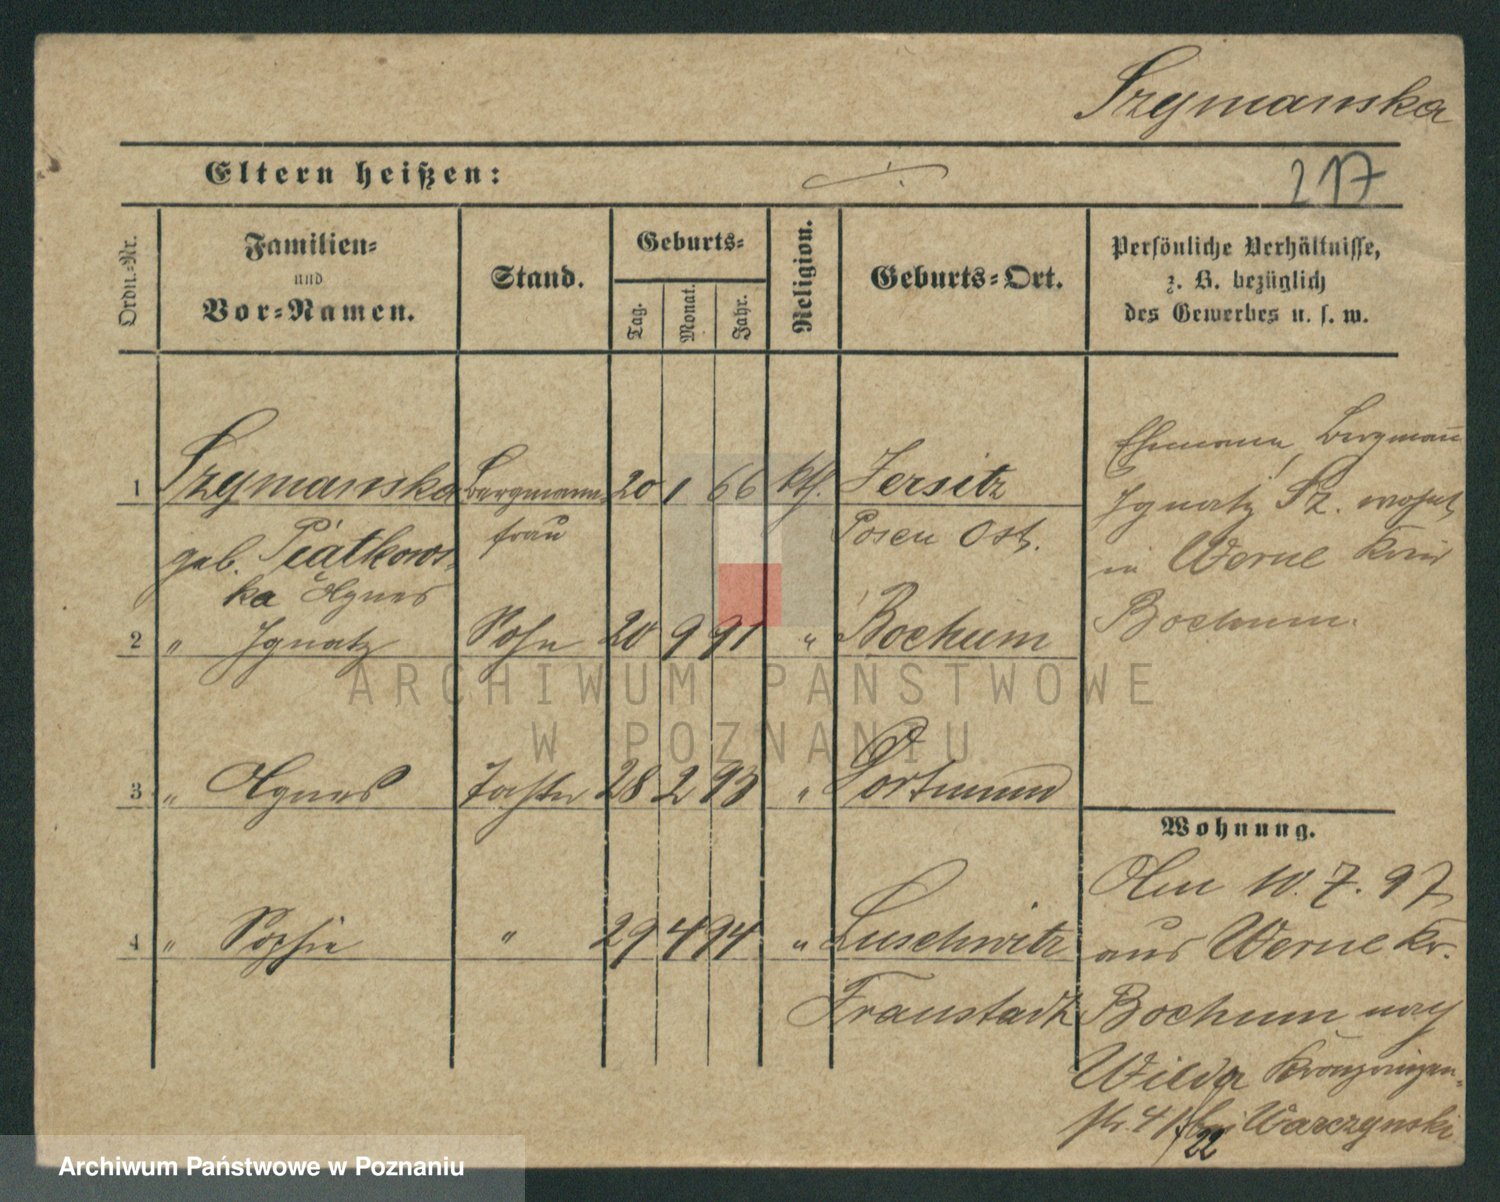 Szymanska
Eltern heißen: ·/·
217
Ordn.-Nr.
Familien-
und
Vor-Namen.
Stand.
Geburts-
Tag.
Monat.
Jahr.
Religion.
Geburts-Ort.
Persönliche Verhältnisse,
z. B. bezüglich
des Gewerbes u. s. w.
1 Szymanska Bergmanns- 20 1 66 kth. Jersitz
geb. Piątkows- frau Posen Ost.
ka Agnes
Ehemann, Bergmann
Ignatz Sz. wohnt
in Werne Kreis
Bochum.
2 " Ignatz Sohn 20 9 91 " Bochum
3 " Agnes Tochter 28 2 93 " Dortmund
4 " Sophie " 29 4 94 " Luschwitz
Fraustadt
Wohnung.
Am 10.7.97
aus Werne Kr.
Bochum nach
Wilda Kronprinzen-
str. 41 bei Warczynski
22
ARCHIWUM PAŃSTWOWE
W POZNANIU
Archiwum Państwowe w Poznaniu